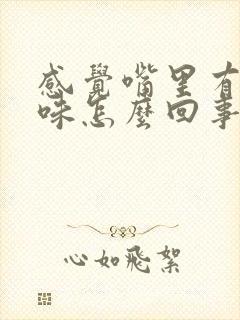 感覺嘴里有
味怎麼回事
心如飛絮